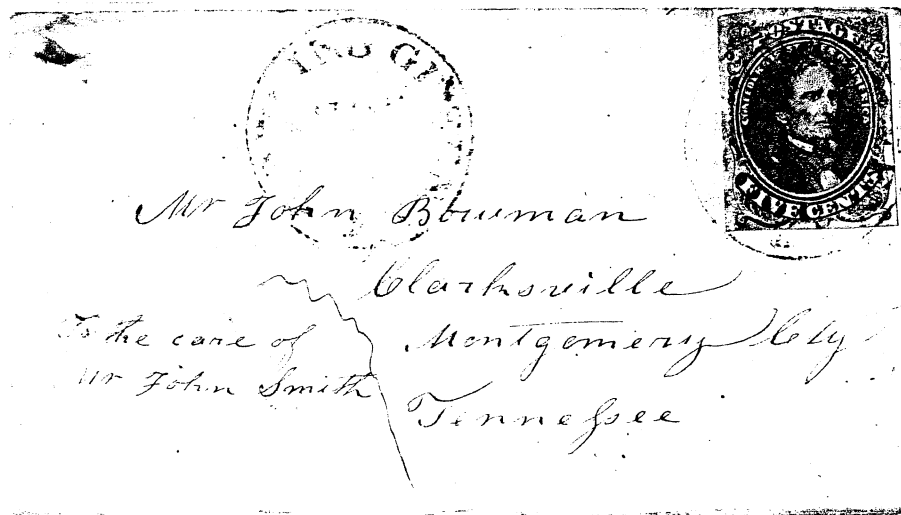 POSTAGE
CONFEDERATE STATES OF AMERICA
FIVE CENTS
Mr John Bowman
Clarksville
Montgomery Cty
Tennessee
To the care of
Mr John Smith